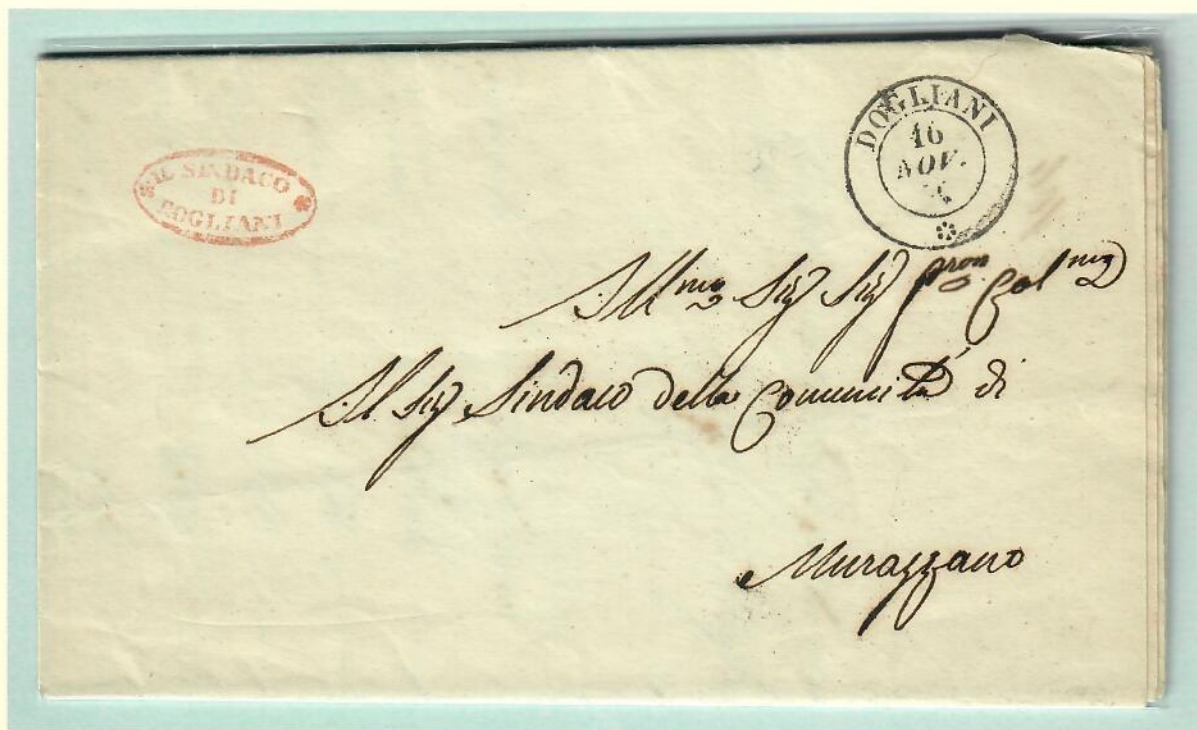 IL SINDACO
DI
DOGLIANI
DOGLIANI
16
NOV.
Ill.mo Sig Sig Pron Col.mo
Al Sig Sindaco della Comunità di
Murazzano